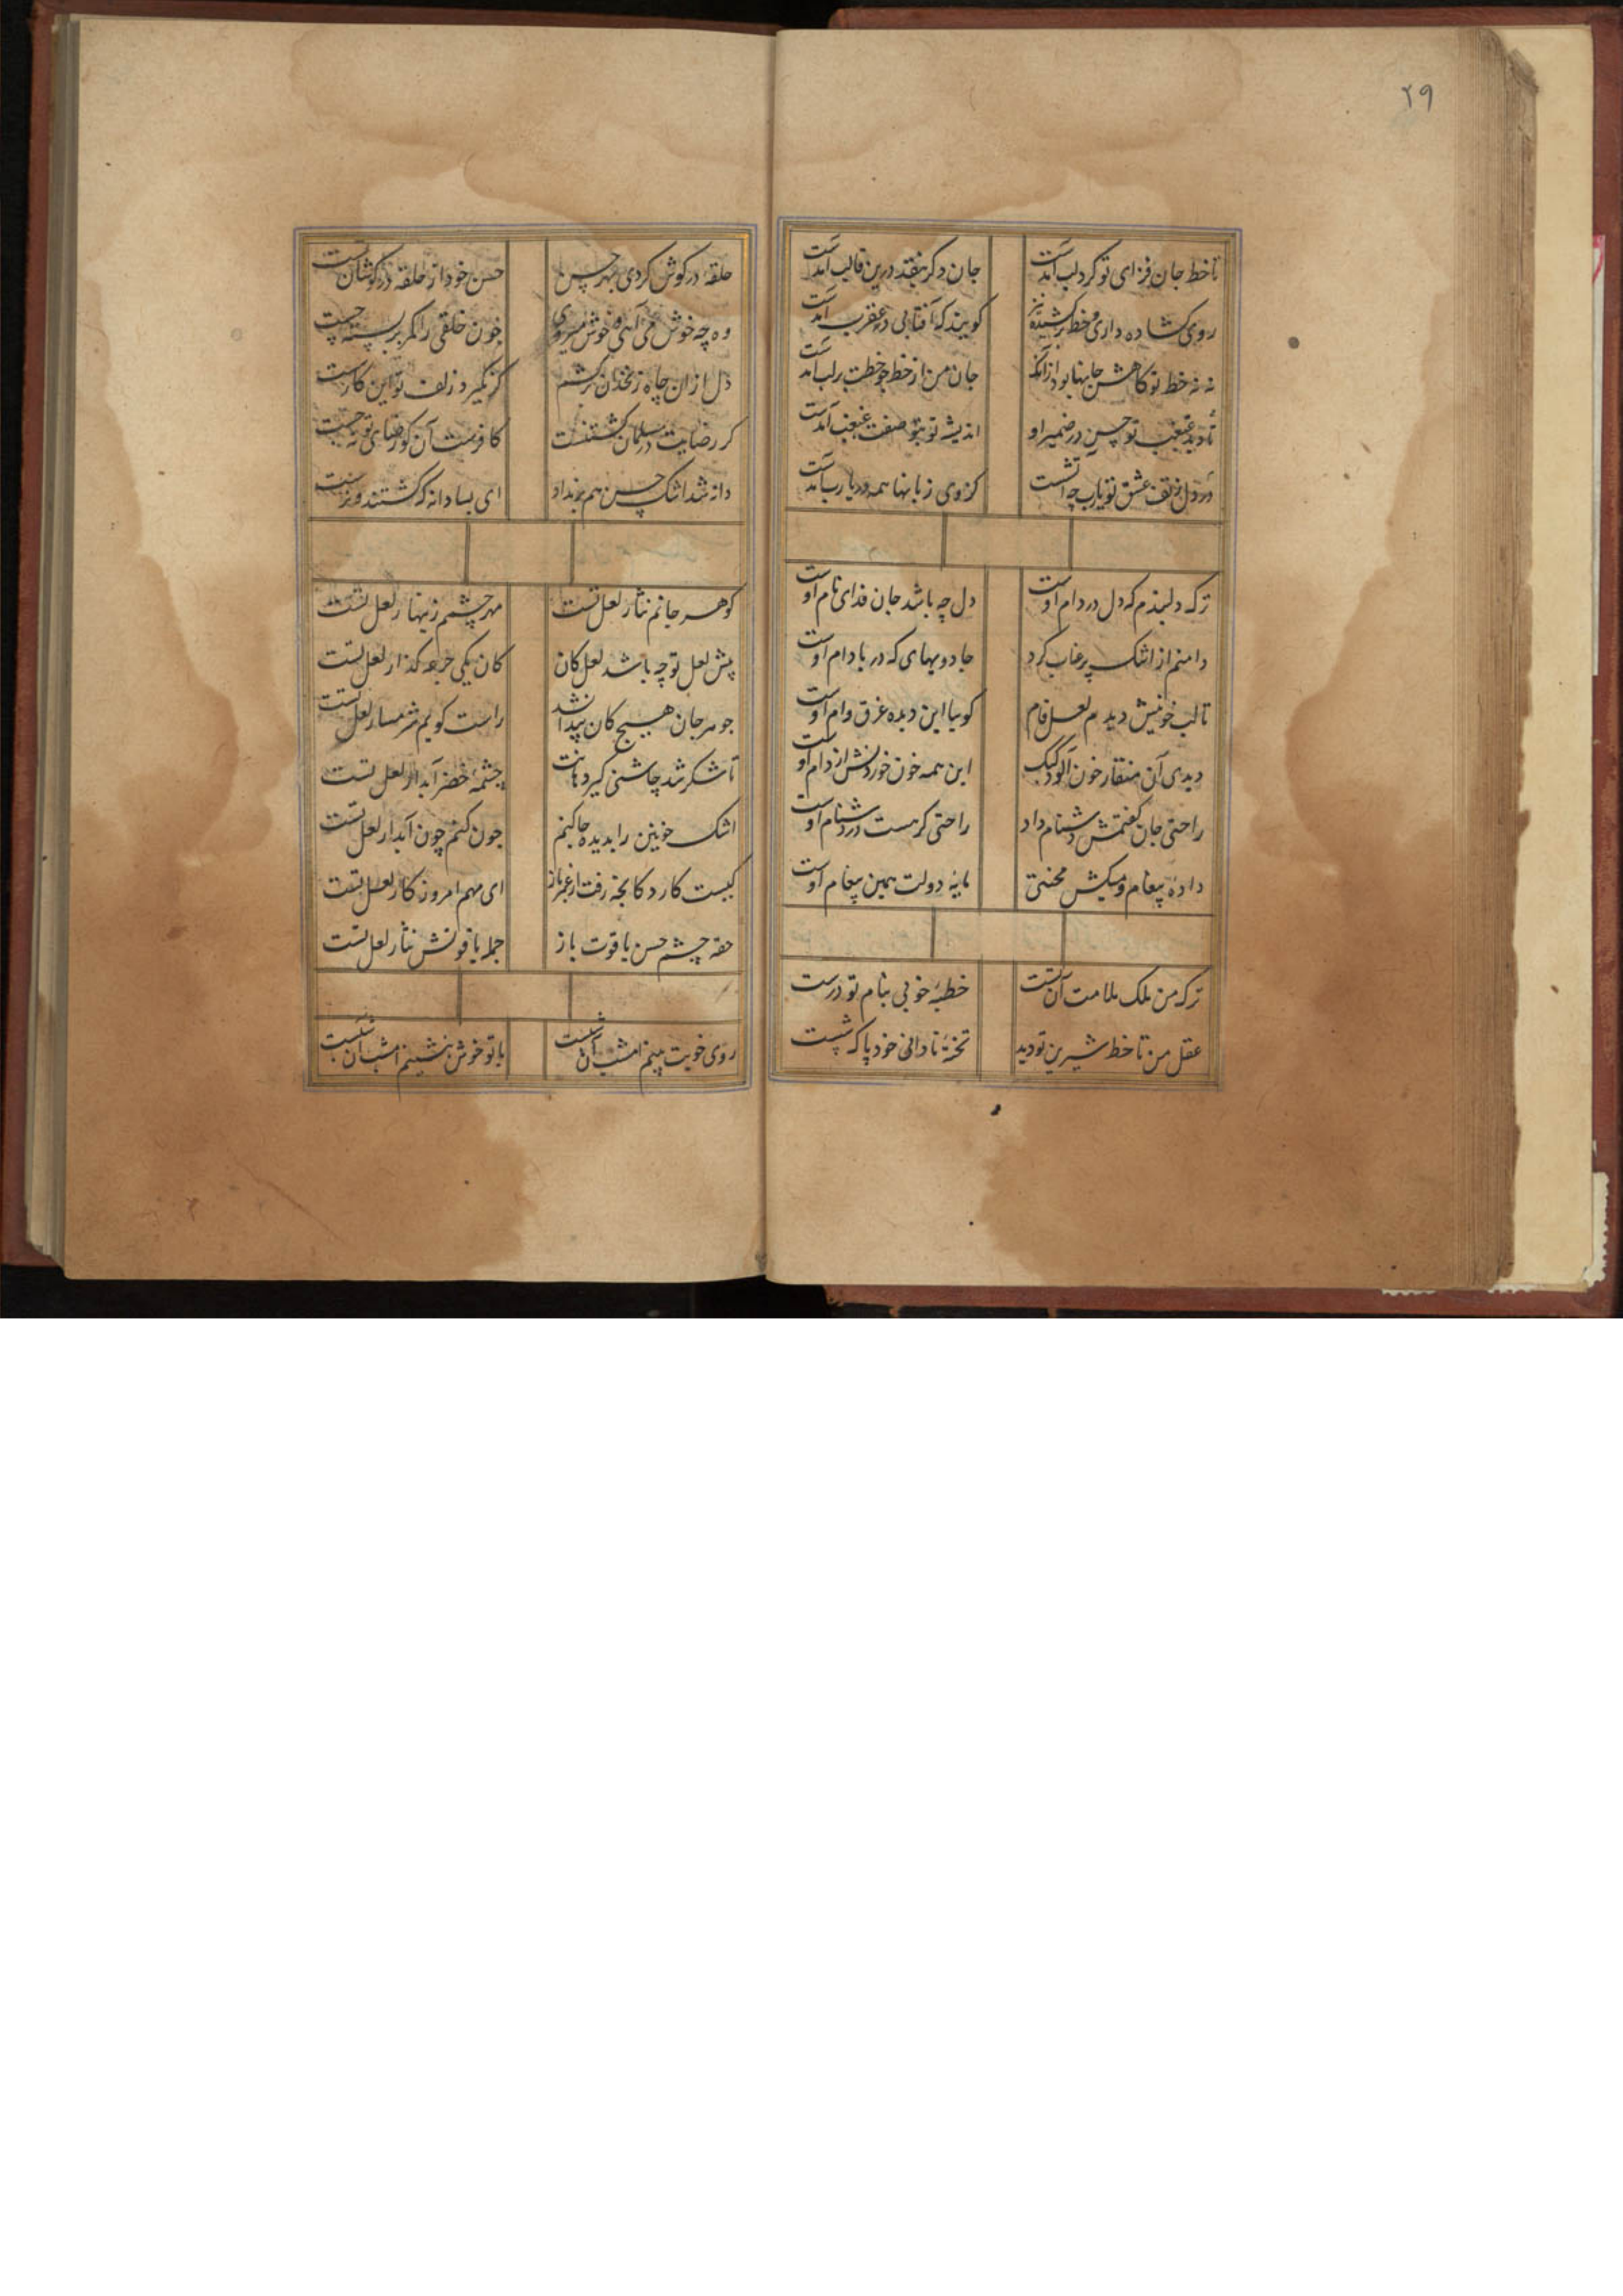 ۲۹
تا خط جان فزای تو گرد لب آمدست
جان دگر بنقد درین قالب آمدست
روی گشاده داری و خط برکشیده نیز
گویند که آفتابی در عقرب آمدست
نه نه خط تو کاهش جانها بود از آنکه
جان من از خط چو خطت بر لب آمدست
تا دید غبغب تو حسن در ضمیر او
اندیشه تو بتو صفت غبغب آمدست
در دل ز تف عشق تو یارب چه آتشست
کز وی زبانها همه در یارب آمدست
ترک دلبندم که دل در دام اوست
دل چه باشد جان فدای نام اوست
دامنم از اشک پر عناب کرد
جادویهای که در بادام اوست
تا لب خونیش دیدم لعل فام
گوییا این دیده غرق وام اوست
دیدی آن منقار خون آلود کبک
این همه خون خوردنش از دام اوست
راحتی جان گفتمش دشنام داد
راحتی گر هست در دشنام اوست
داده پیغام و میکش محنتی
مایه دولت همین پیغام اوست
ترک من ملک ملامت آن تست
خطبه خوبی بنام تو درست
عقل من تا خط شیرین تو دید
تخته نادانی خود پاک شست
حلقه در گوش کردی بهر چیست
حسن خود از حلقه در گوشان تست
وه چه خوش می آیی و خوش میروی
خون خلقی را کمر بر بسته چست
دل از آن چاه زنخدان برکشم
گر نگیرد زلف تو این کار سست
گر رضایت در مسلمان کشتنست
کافرست آن کو رضای تو نجست
دانه شد اشک حسن هم بر نداد
ای بسا دانه که کشتند و نرست
گوهر جانم نثار لعل تست
مهر چشمم زینهار لعل تست
پیش لعل تو چه باشد لعل کان
کان یکی جرعه گذار لعل تست
جوهر جان هیچ کان پیدا نشد
راست گویم شرمسار لعل تست
تا شکر شد چاشنی گیر دهانت
چشمه خضر آبدار لعل تست
اشک خونین را بدیده جا کنم
چون کنم چون آبدار لعل تست
کیست کارد کانچه رفت از عمر باز
ای مهم امروز کار لعل تست
حقه چشم حسن یاقوت باز
جمله یاقوتش نثار لعل تست
روی خوبت بینم امشب آن شبست
با تو خوش بنشینم امشب آن شبست